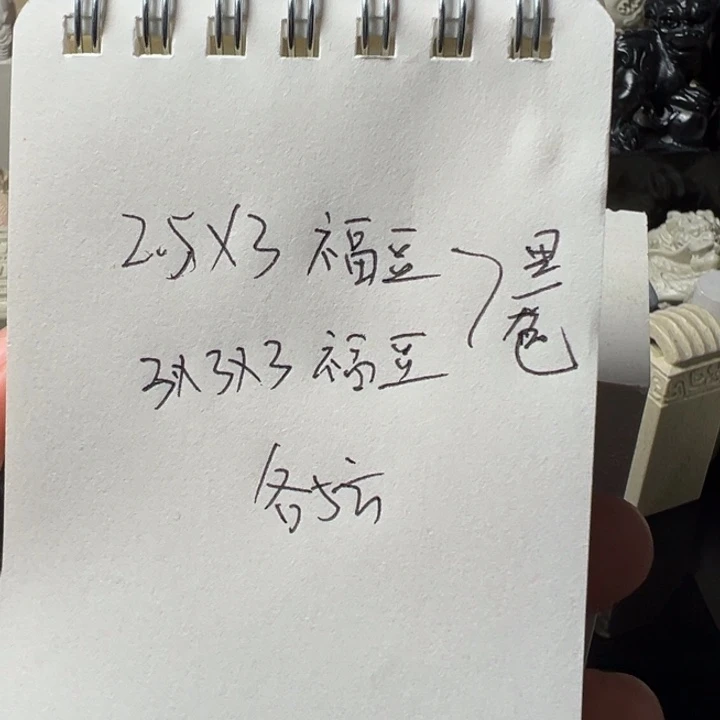 2.5X3 福豆
3X3X3 福豆
黑色
各